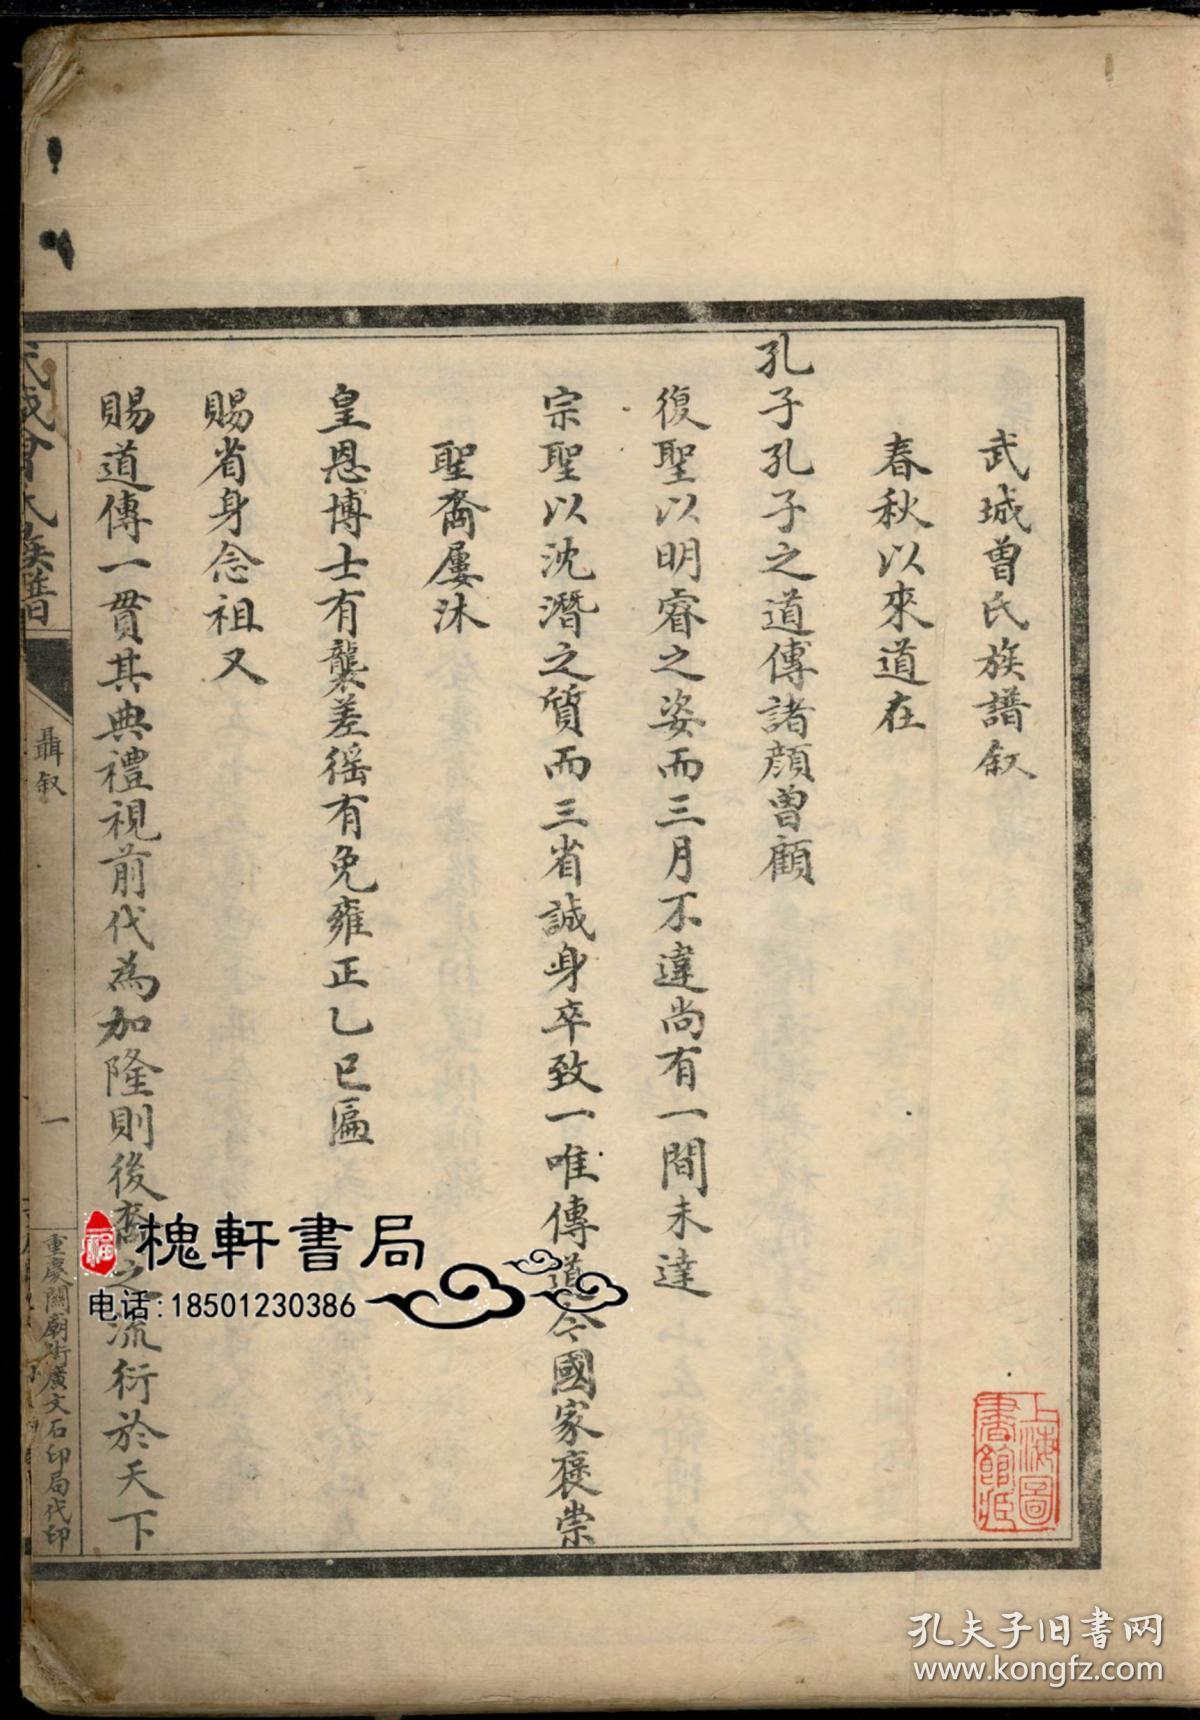 武城曾氏族譜叙
春秋以來道在
孔子孔子之道傳諸顏曾顧
復聖以明睿之姿而三月不違尚有一間未達
宗聖以沈潛之質而三省誠身卒致一唯傳道今國家褒崇
聖裔屢沐
皇恩博士有襲差徭有免雍正乙巳匾
賜省身念祖又
賜道傳一貫其典禮視前代為加隆則後裔之流衍於天下
氏族譜
聶叙
一
重慶關廟街廣文石印局代印
上海圖書館藏
福
槐軒書局
电话:18501230386
孔夫子旧书网
www.kongfz.com